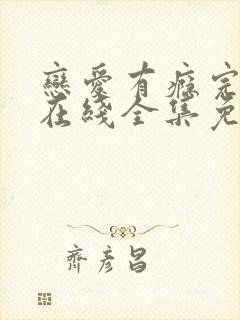 戀愛有癮完
在綫全集免
齊彥昌